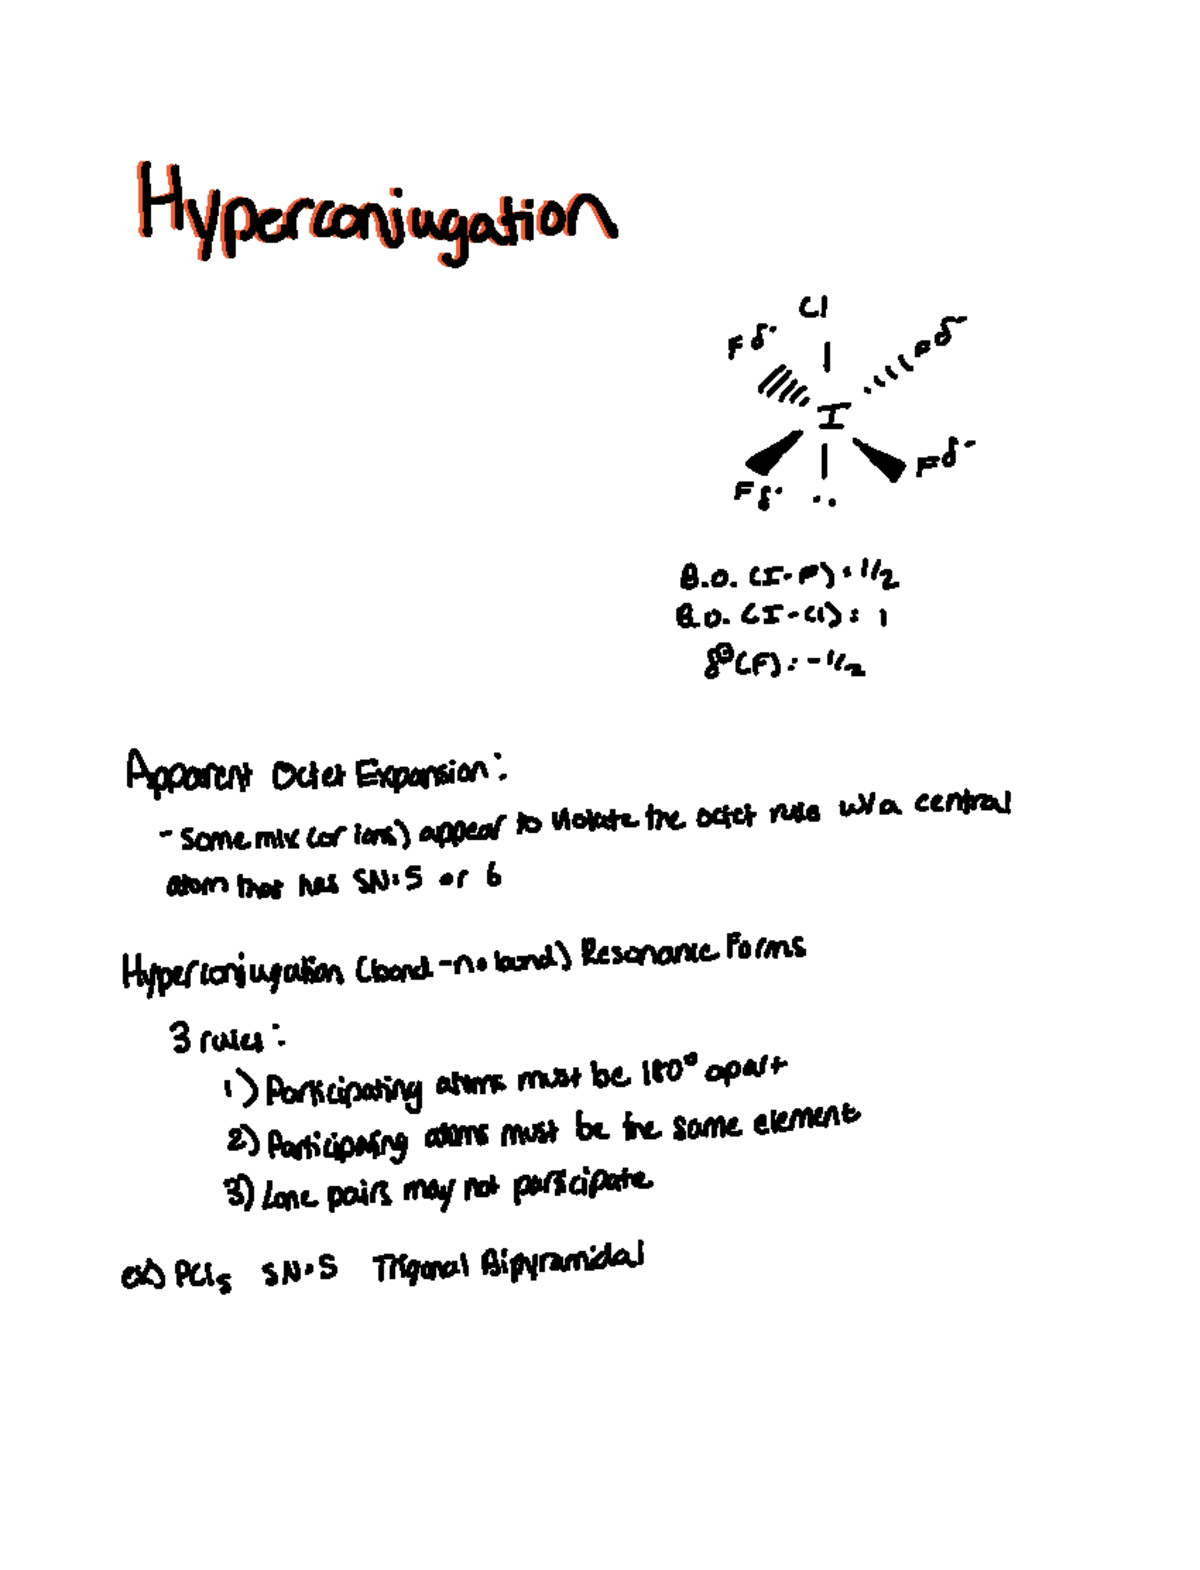 Hyperconjugation
Cl
F δ-
F δ-
I
F δ-
F δ-
..
B.O. (I-F) = 1/2
B.O. (I-Cl) = 1
δ⊖(F) = -1/2
Apparent Octet Expansion:
- Some mlc (or ions) appear to violate the octet rule w/ a central
atom that has SN=5 or 6
Hyperconjugation (bond-no bond) Resonance Forms
3 rules:
1) Participating atoms must be 180° apart
2) Participating atoms must be the same element
3) Lone pairs may not participate
ex) PCl₅ SN=5 Trigonal Bipyramidal